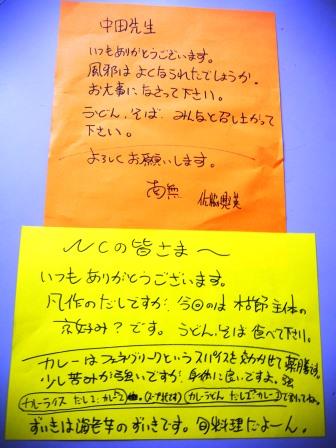 中田先生
いつもありがとうございます。
風邪はよくなられたでしょうか。
お大事になさって下さい。
うどん、そば、みんなと召し上がって
下さい。
よろしくお願いします。
南無
NCの皆さま〜
いつもありがとうございます。
凡作のだしですが、今回のは枯節主体の
京好み?です。うどん、そば食べて下さい。
カレーはフェネグリークというスパイスを効かせて薬膳です。
少し苦みが強いですが、身体に良いですよ。
カレーライス だし2:カレー
カレーうどん だし2:カレー1 で割ってね。
ずいきは海老芋のずいきです。旬料理だよーん。